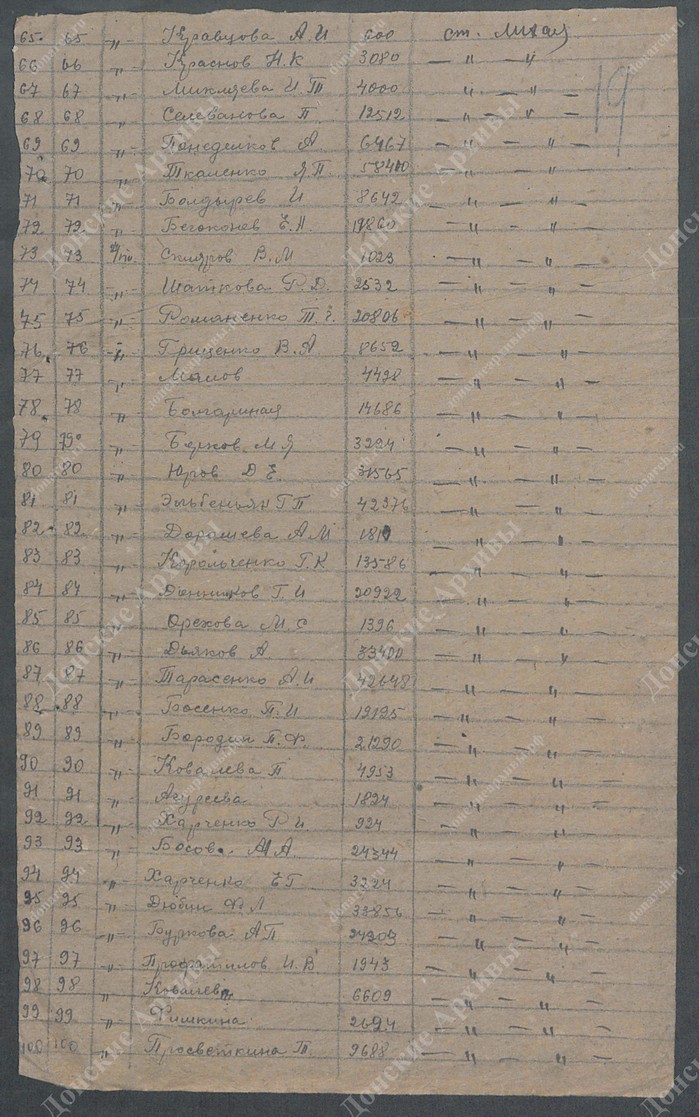 65. 65 " Кравцова А.И 600 ст. Лихая
66 66 " Краснов Н.К 3080 — " — "
67 67 " Микляева И.Т 4000 — " — " —
68 68 " Селеванова П. 12512 — " — " —
69 69 " Понеделков А. 6467 — " — " —
70. 70 " Ткаленко Я.П 58400 — " — " —
71 71 " Болдырев И 8642 — " — " —
72 72 " Бегоконев Е.П. 860 — " — " —
73 73 Скляров В.М 1023 — " — " —
74 74 " Шаткова Р.Д. 2532 — " — " —
75 75 " Романенко Т.Г. 20806 — " — " —
76. 76 " Грищенко В.А 8652 — " — " —
77 77 " 4428 — " — " —
78. 78 " Болгариная 14686 — " — " —
79 79 " Берков М.Я 3294 — " — " —
80 80 " Юров Д.Е. 31565 — " — " —
81 81 " Г.П 42976 — " — " —
82. 82 " Дорашева А.М — " — " —
83 83 " Карольченко Г.К 13586 — " — " —
84 84 " Донников Г.И 20922 — " — " —
85 85 " Орехова М.С 1396 — " — " —
86 86 " Дьяков А. 33400 — " — "
87 87 " Тарасенко А.И 42648 — " — " —
88. 88 " Босенко П.И 19195 — " — " —
89 89 " Бородин П.Ф. 21290 — " — " —
90 90 " Ковалева П 4953 — " — " —
91 91 " 1824 — " — " —
92 92 " Харченко Р.И 924 — " — " —
93 93 " Босов А.А. 24344 — " — "
94 94 " Харченко Е.Г 3224 — " — " —
95 95 " Дюбин Ф.Л 33856 — " — " —
96 96 " Буркова А.П 24303 — " — " —
97 97 " И.В 1943 — " — " —
98 98 " Ковалев 6609 — " — " —
99 99 " Фишкина 2694 — " — " —
100 100 " Просветкина Т. 9688 — " — " —
19
Донские Архивы
donarch.ru
донархив.рф